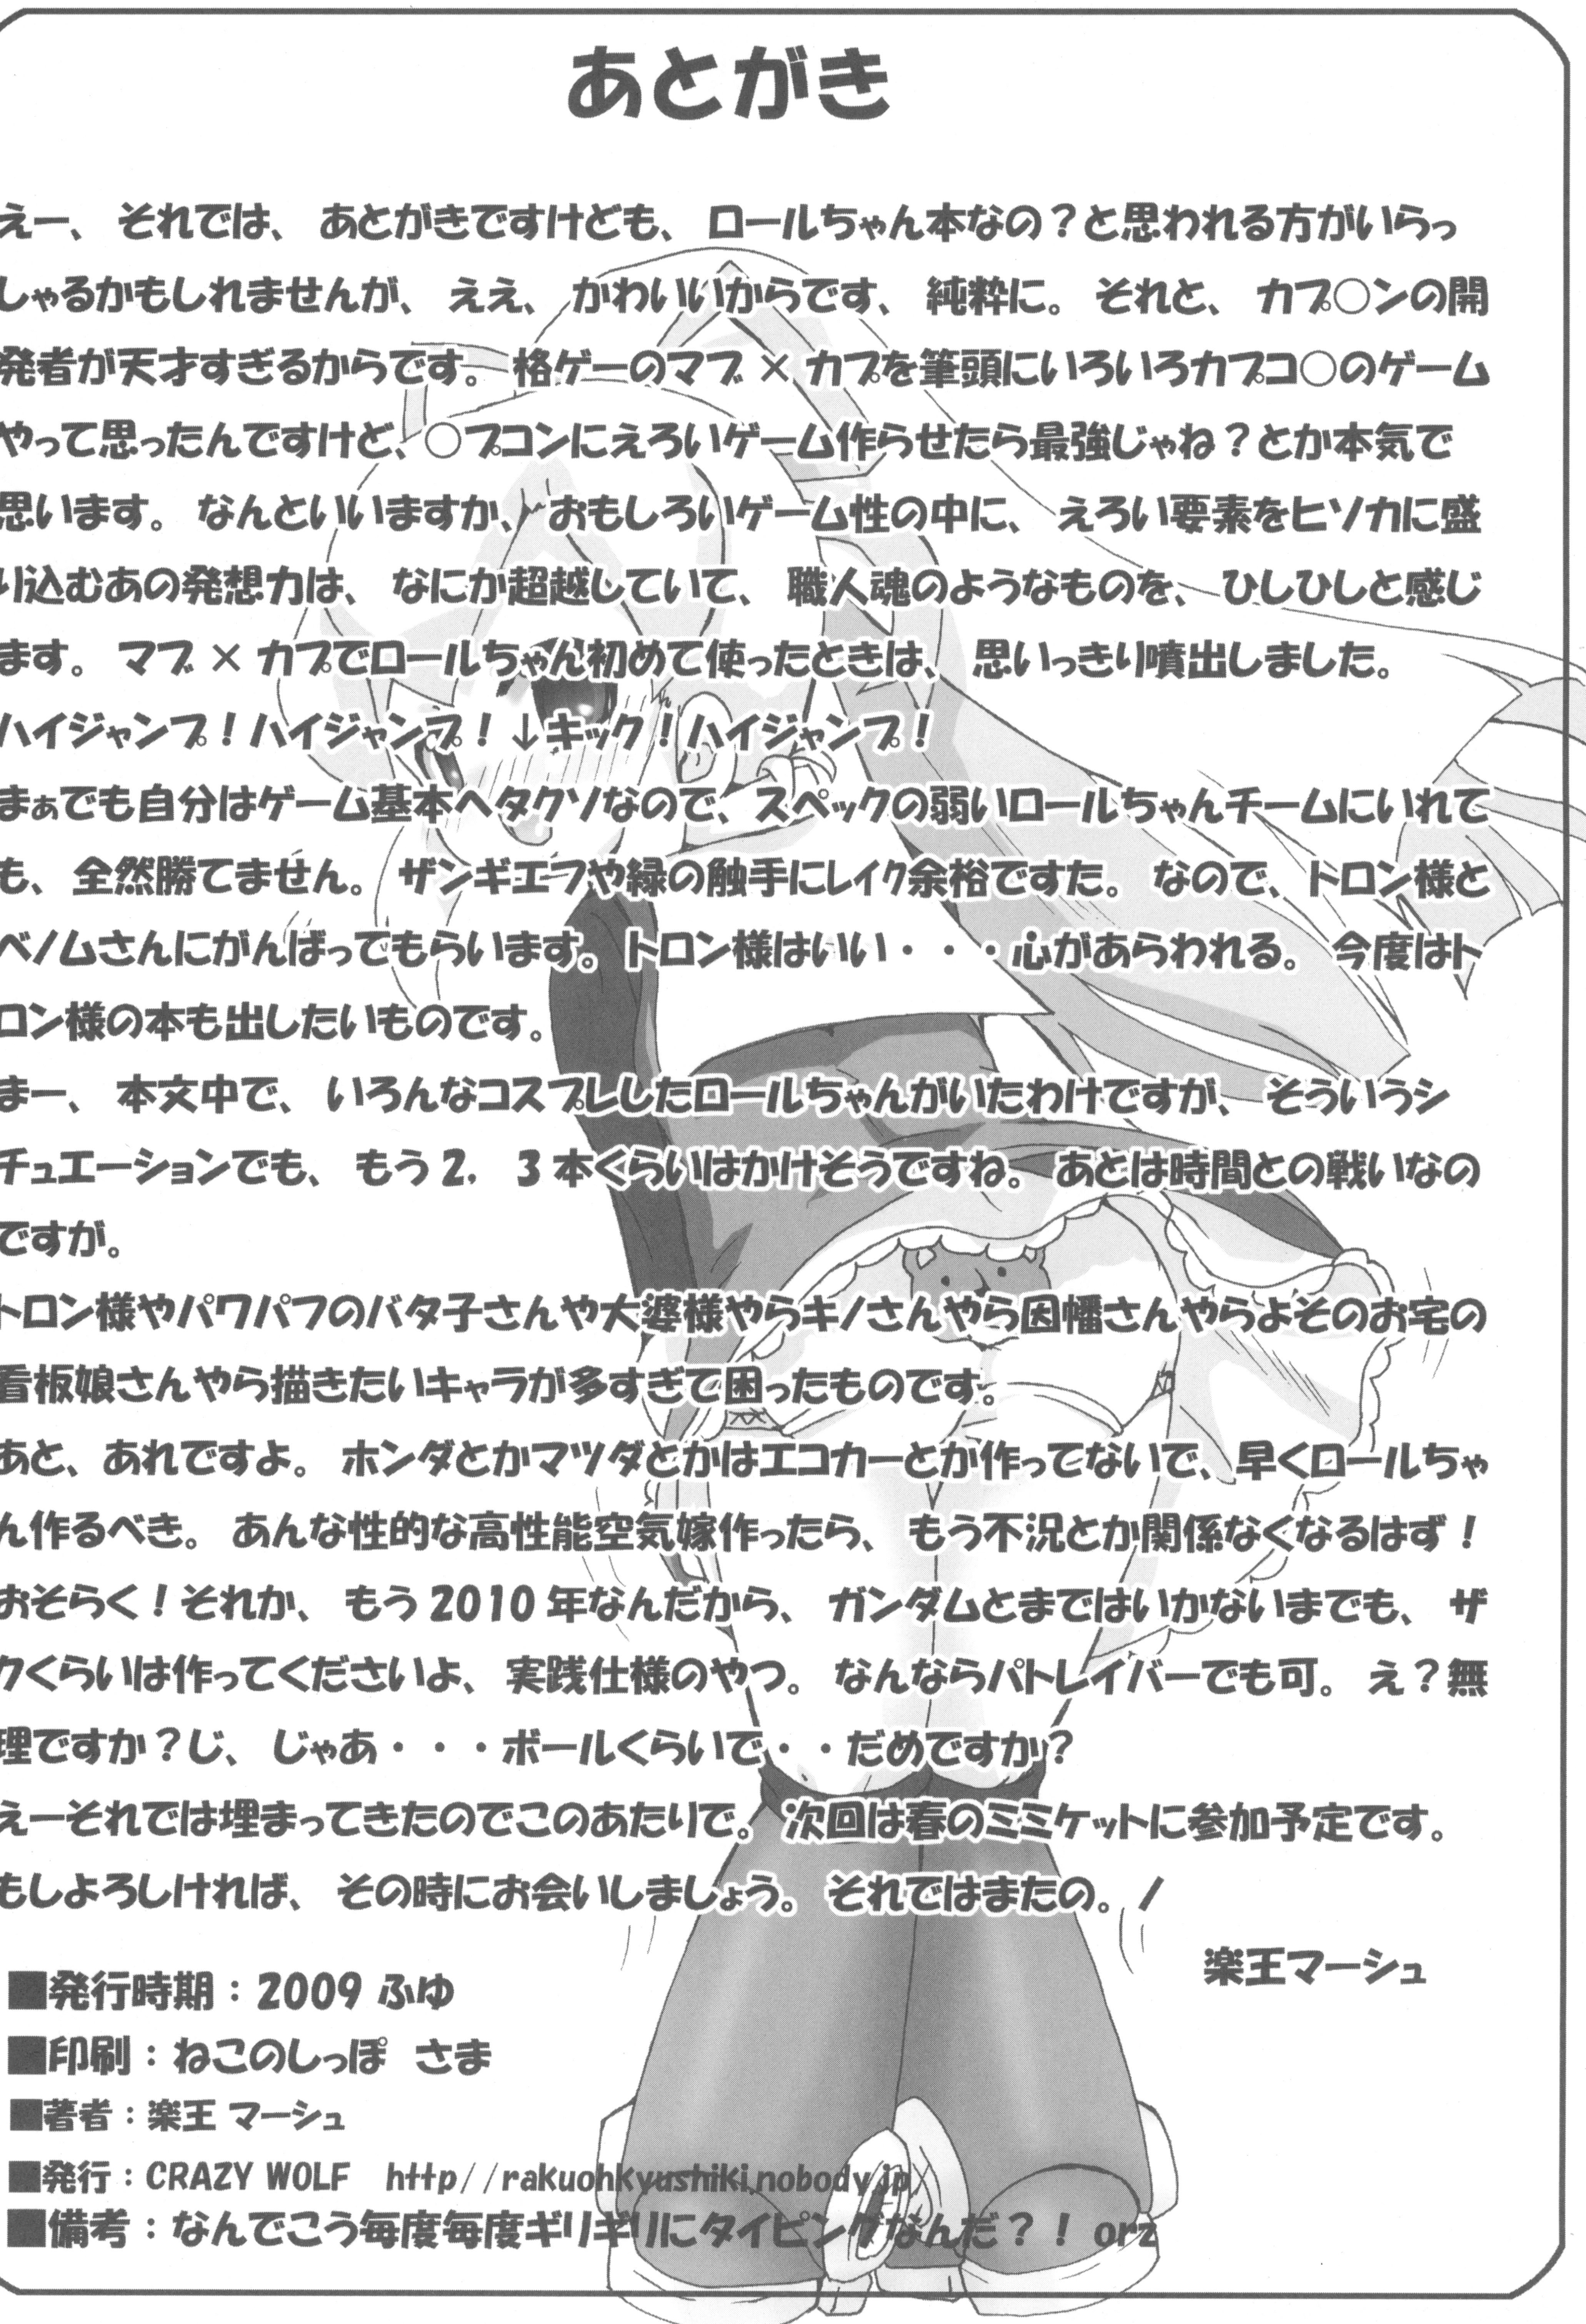 あとがき
えー、それでは、あとがきですけども、ロールちゃん本なの？と思われる方がいらっ
しゃるかもしれませんが、ええ、かわいいからです、純粋に。それと、カプ○ンの開
発者が天才すぎるからです。格ゲーのマブ×カプを筆頭にいろいろカプコ○のゲーム
やって思ったんですけど、○プコンにえろいゲーム作らせたら最強じゃね？とか本気で
思います。なんといいますか、おもしろいゲーム性の中に、えろい要素をヒソカに盛
り込むあの発想力は、なにか超越していて、職人魂のようなものを、ひしひしと感じ
ます。マブ×カプでロールちゃん初めて使ったときは、思いっきり噴出しました。
ハイジャンプ！ハイジャンプ！↓キック！ハイジャンプ！
まぁでも自分はゲーム基本ヘタクソなので、スペックの弱いロールちゃんチームにいれて
も、全然勝てません。ザンギエフや緑の触手にレイク余裕ですた。なので、トロン様と
ベノムさんにがんばってもらいます。トロン様はいい・・・心があらわれる。今度はト
ロン様の本も出したいものです。
まー、本文中で、いろんなコスプレしたロールちゃんがいたわけですが、そういうシ
チュエーションでも、もう2，3本くらいはかけそうですね。あとは時間との戦いなの
ですが。
トロン様やパワパフのバタ子さんや大婆様やらキノさんやら因幡さんやらよそのお宅の
看板娘さんやら描きたいキャラが多すぎて困ったものです。
あと、あれですよ。ホンダとかマツダとかはエコカーとか作ってないで、早くロールちゃ
ん作るべき。あんな性的な高性能空気嫁作ったら、もう不況とか関係なくなるはず！
おそらく！それか、もう2010年なんだから、ガンダムとまではいかないまでも、ザ
クくらいは作ってくださいよ、実践仕様のやつ。なんならパトレイバーでも可。え？無
理ですか？じ、じゃあ・・・ボールくらいで・・だめですか？
えーそれでは埋まってきたのでこのあたりで。次回は春のミミケットに参加予定です。
もしよろしければ、その時にお会いしましょう。それではまたの。ノ
楽王マーシュ
■発行時期：2009 ふゆ
■印刷：ねこのしっぽ さま
■著者：楽王 マーシュ
■発行：CRAZY WOLF http//rakuohkyushiki.nobody.jp/
■備考：なんでこう毎度毎度ギリギリにタイピングなんだ？！ orz